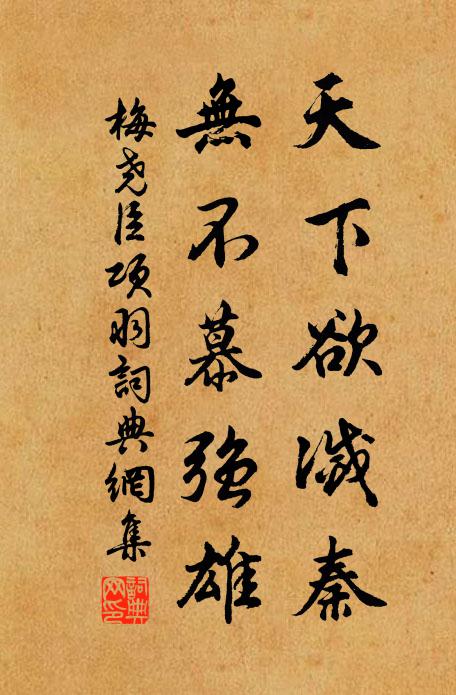 天下欲滅秦
無不慕強雄
梅堯臣項羽詞典網集
詞典网印